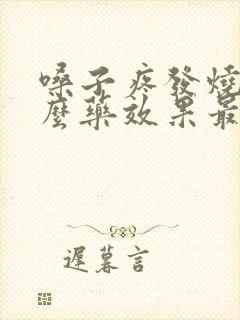 嗓子疼發燒
麼藥效果最
遲暮言